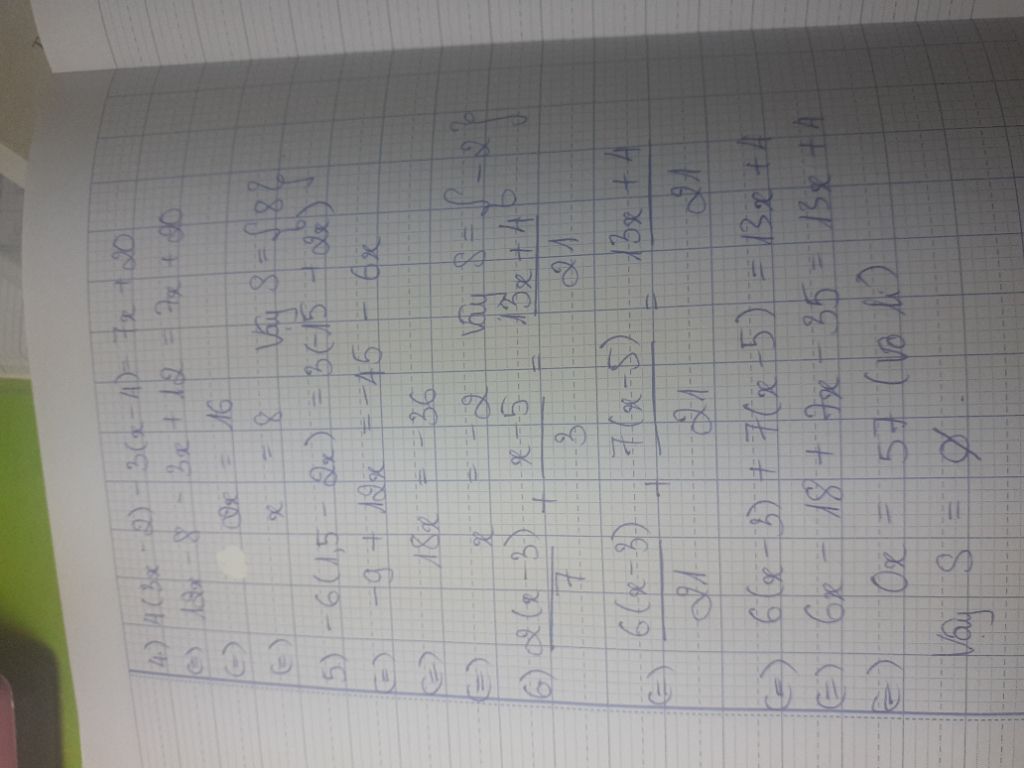 4) 4(3x - 2) - 3(x - 4) = 7x + 20
(=) 12x - 8 - 3x + 12 = 7x + 20
(=) 2x = 16
(=) x = 8 Vậy S = { 8 }
5) - 6(1,5 - 2x) = 3(-15 + 2x)
(=) -9 + 12x = -45 - 6x
(=) 18x = -36
(=) x = -2 Vậy S = { -2 }
6) 2(x - 3)/7 + x - 5/3 = 13x + 4/21
(=) 6(x - 3)/21 + 7(x - 5)/21 = 13x + 4/21
(=) 6(x - 3) + 7(x - 5) = 13x + 4
(=) 6x - 18 + 7x - 35 = 13x + 4
(=) 0x = 57 (vô lí)
Vậy S = Ø